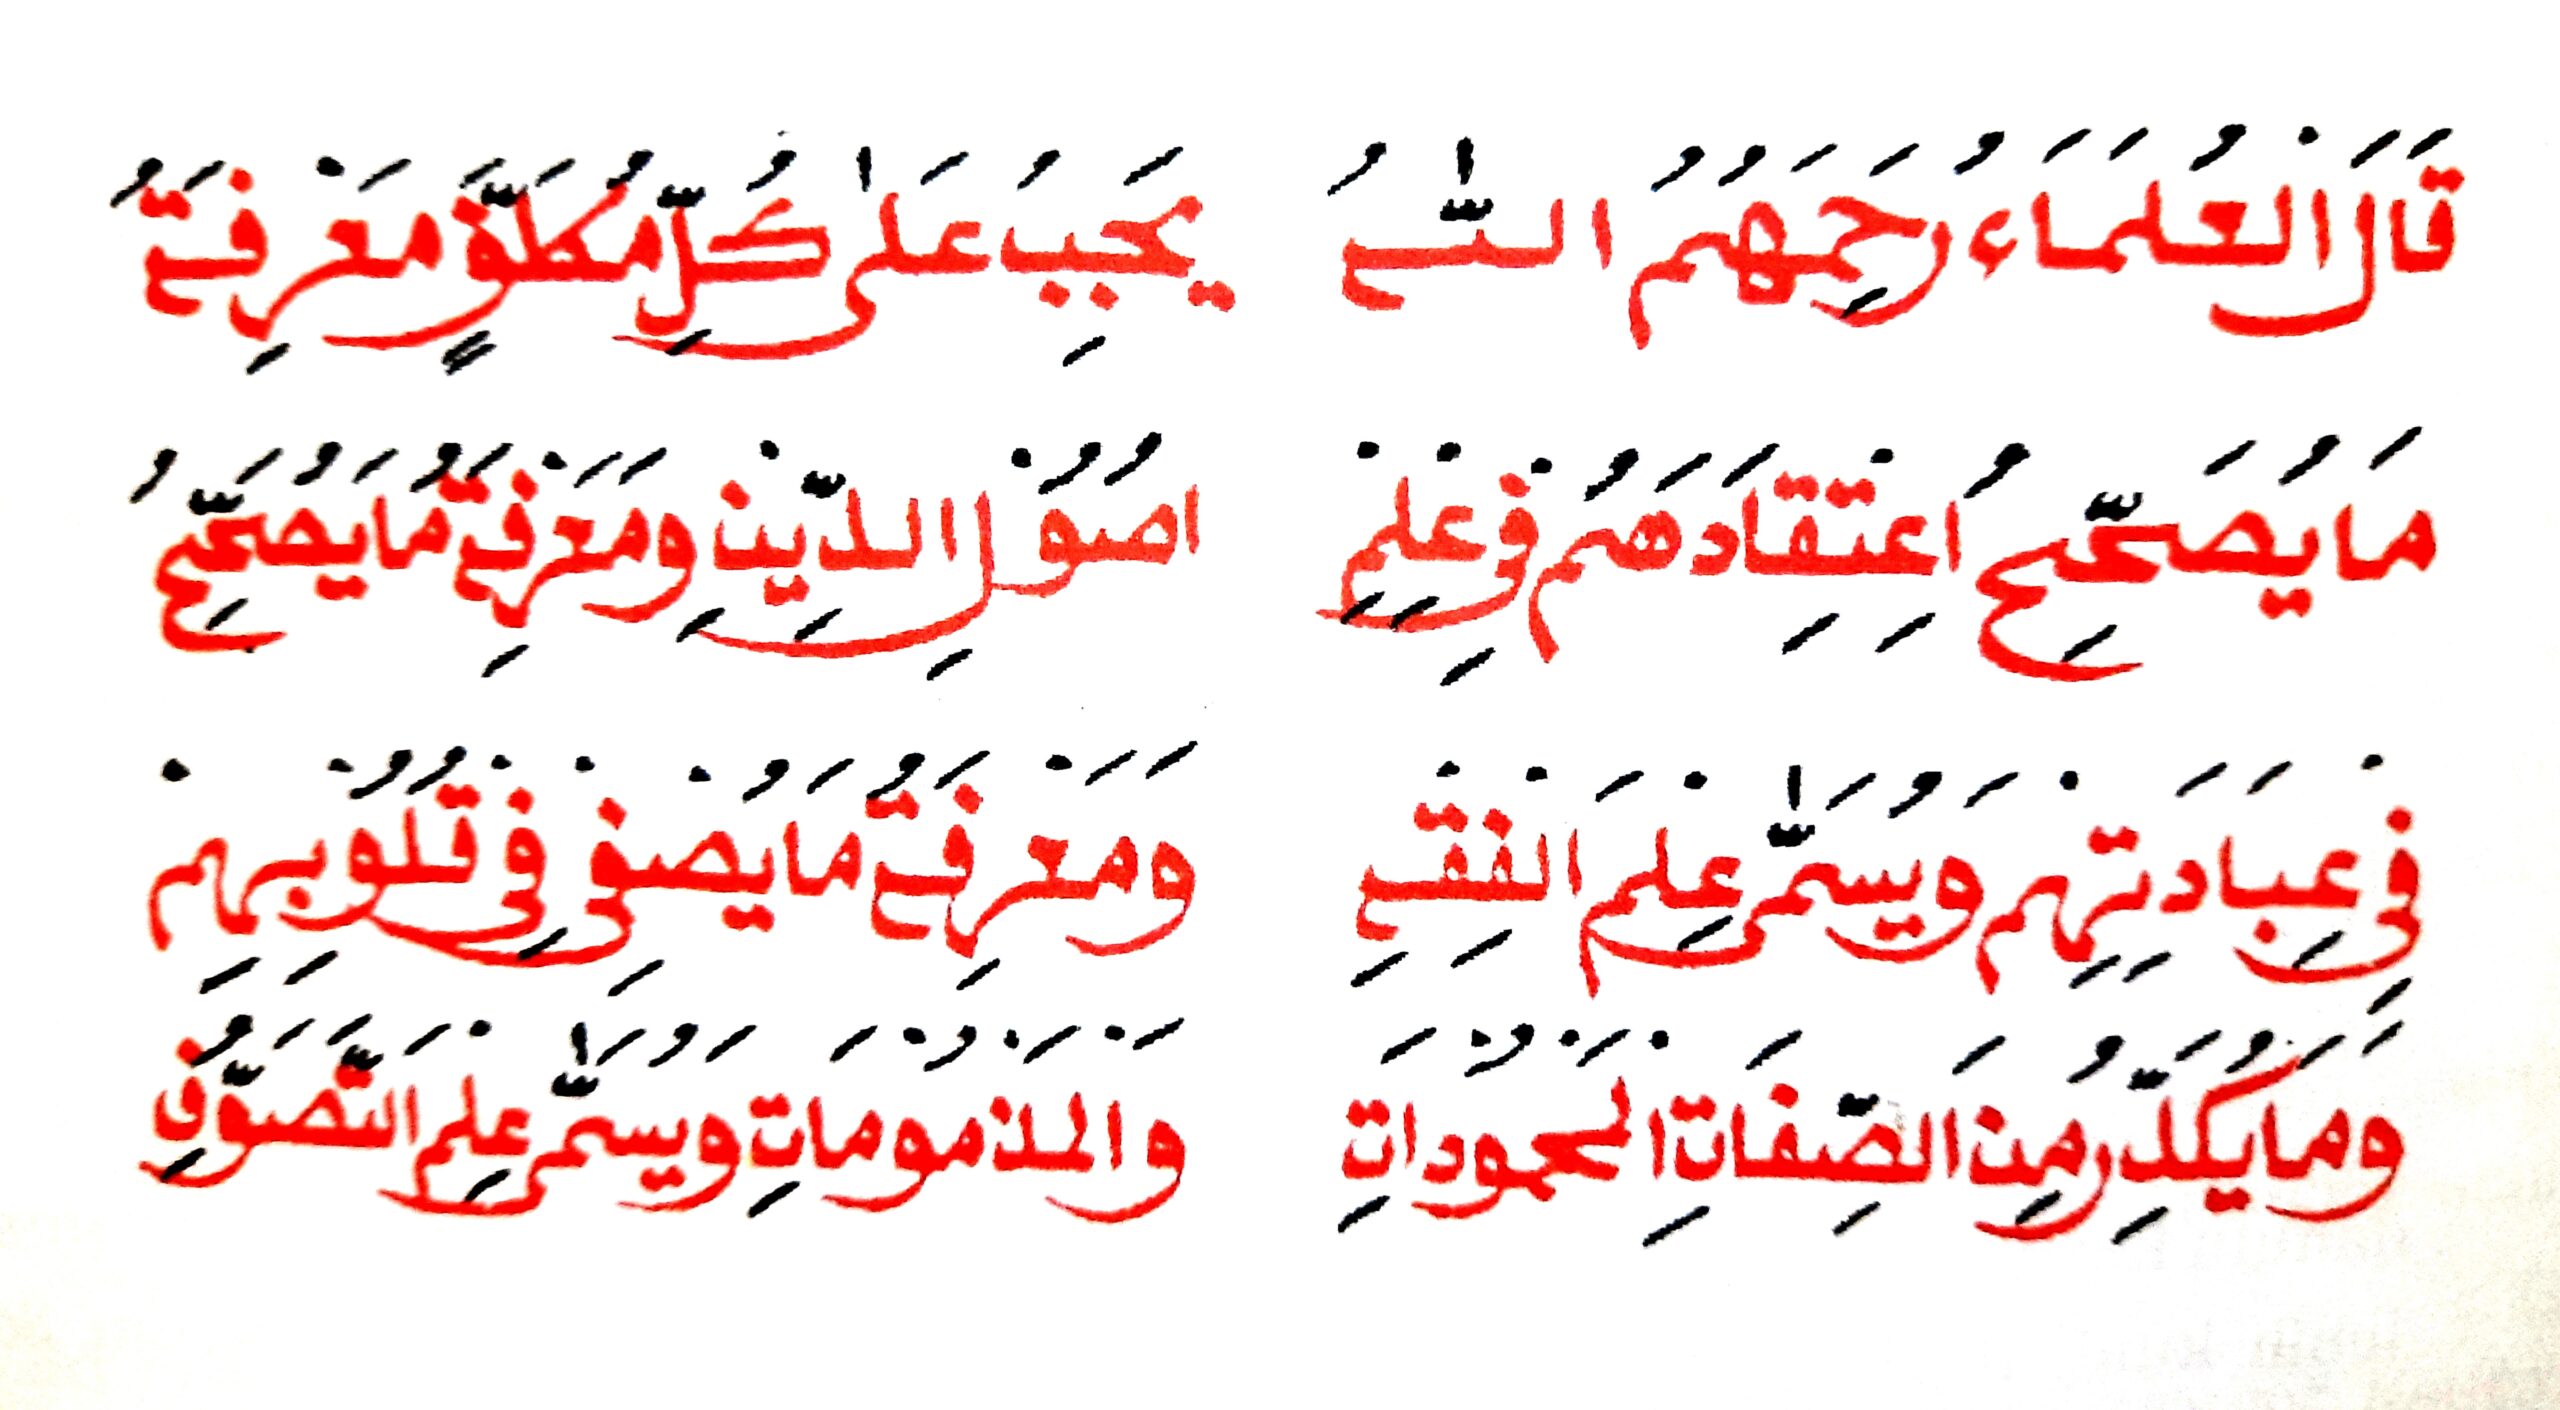 قَالَ الْعُلَمَاءُ رَحِمَهُمُ اللّٰهُ يَجِبُ عَلَىٰ كُلِّ مُكَلَّفٍ مَعْرِفَةُ
مَا يُصَحِّحُ اِعْتِقِادَهُمْ فِيْ عِلْمِ اُصُوْلِ الدِّيْنِ وَمَعْرِفَةُ مَا يُصَحِّحُ
فِيْ عِبَادَتِهِمْ وَيُسَمَّىٰ عِلْمَ الْفِقْهِ وَمَعْرِفَةُ مَا يُصْفِيْ فِيْ قُلُوْبِهِمْ
وَمَا يُكَدِّرُ مِنَ الصِّفَاتِ الْمَحْمُوْدَاتِ وَالْمَذْمُوْمَاتِ وَيُسَمَّىٰ عِلْمَ التَّصَوُّفِ